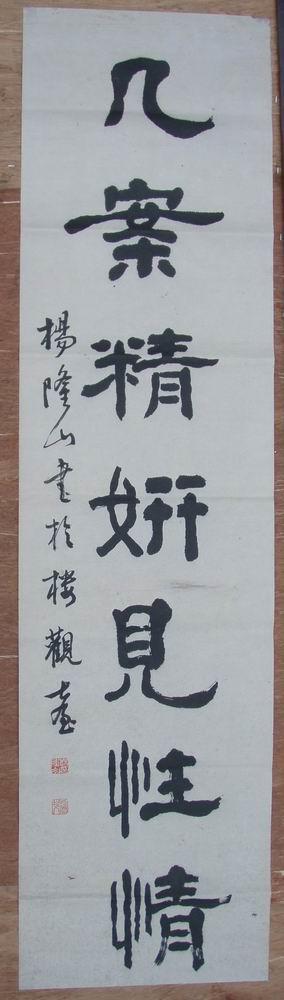 几案精妍見性情
楊隆山書於樓觀臺